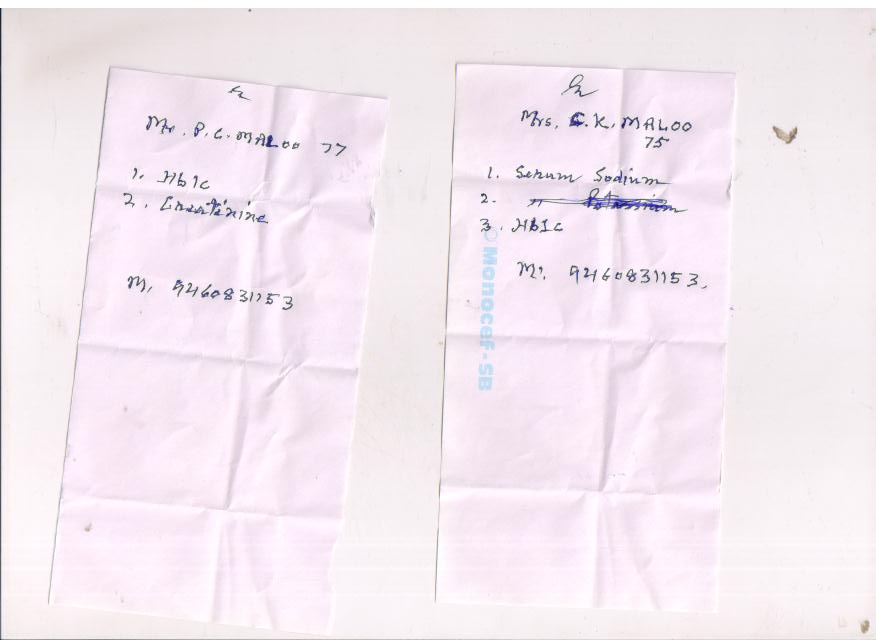 Mr. P. C. MALOO 77
1. Hb1c
2. Creatinine
M. 9460831153
Mrs. C. K. MALOO
75
1. Serum Sodium
2. " Potassium
3. Hb1c
M. 9460831153.
Monocef-SB